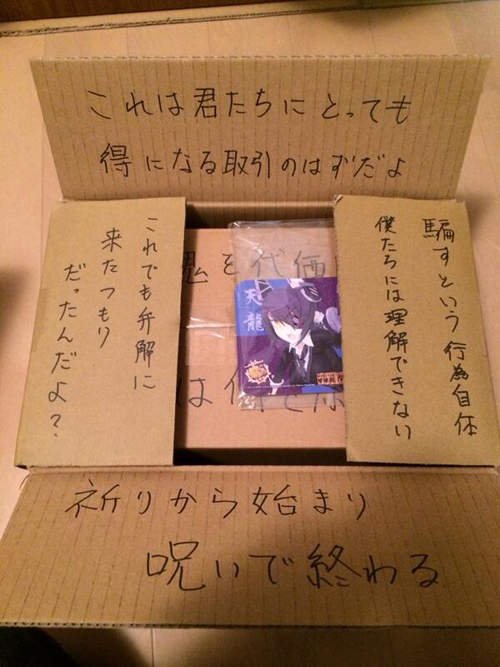 これは君たちにとっても
得になる取引のはずだよ
騙すという行為自体
僕たちには理解できない
これでも弁解に
来たつもり
だったんだよ？
を代価
は何
天龍
祈りから始まり
呪いで終わる